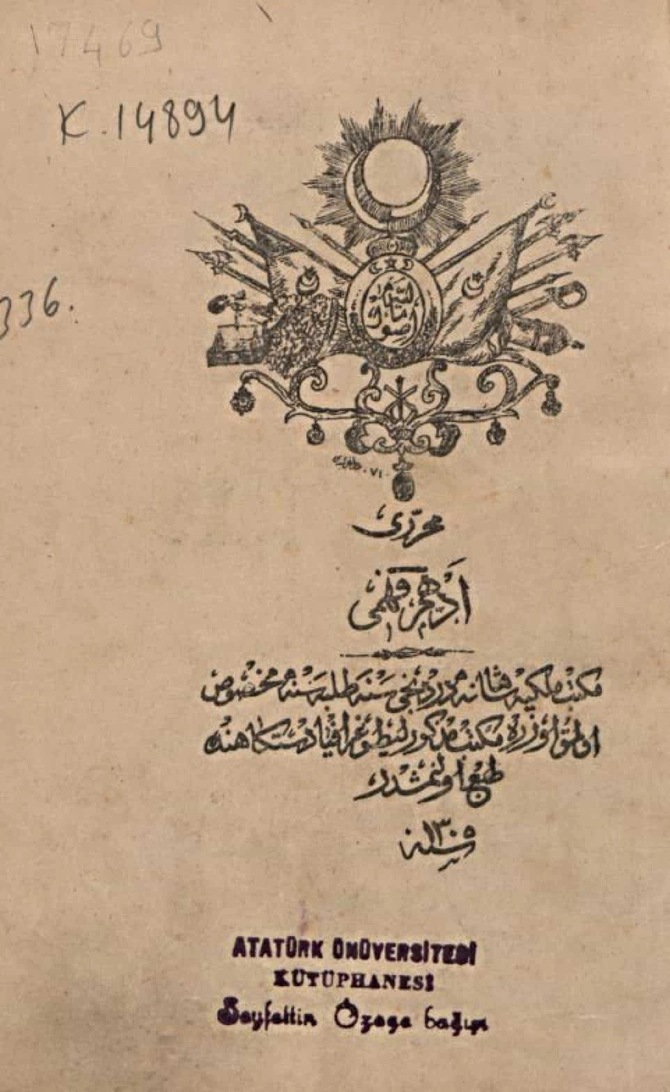 17469
K.14894
336.
محرّرى
ادهم فهمى
مكتب ملكيۀ شاهانه دردنجى سنه طلبه سنه مخصوص
اولمق اوزره مكتب مذكور ليطوغرافيا دستكاهنده
طبع اولنمشدر
سنه ١٣٠٥
ATATÜRK ÜNÜVERSİTESİ
KÜTÜPHANESİ
Seyfettin Özege bağışı